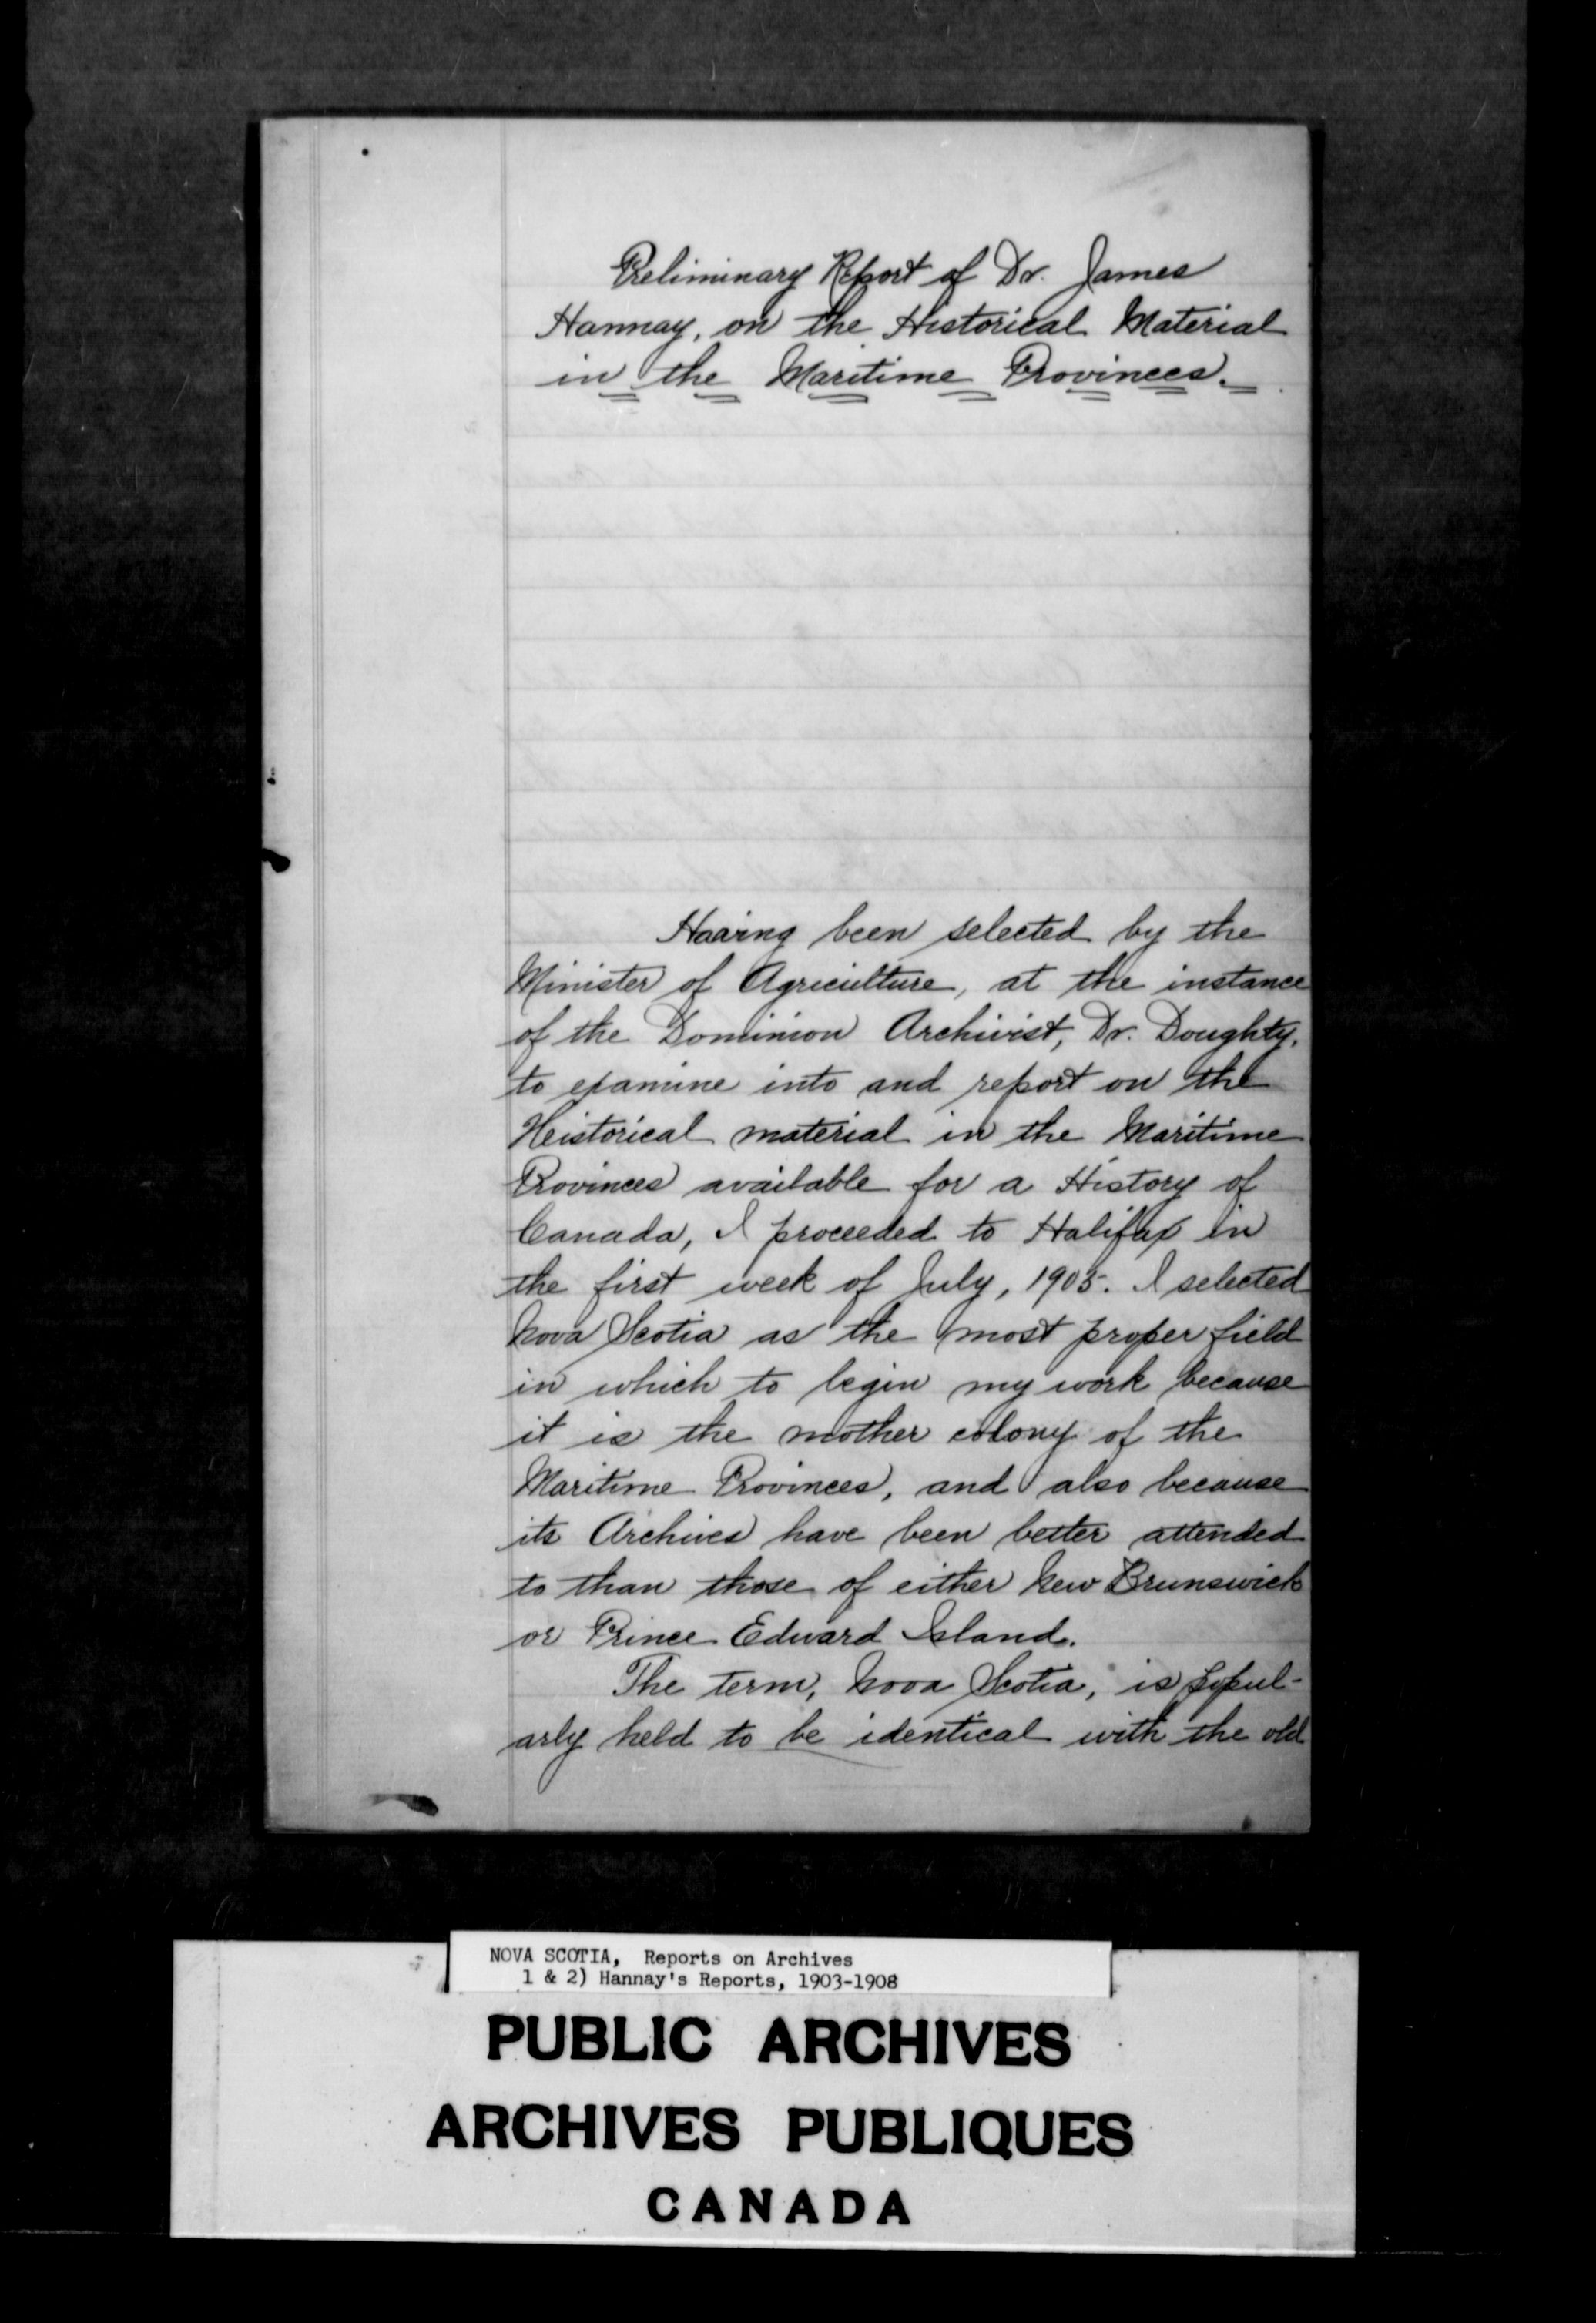 Preliminary Report of Dr. James
Hannay, on the Historical Material
in the Maritime Provinces.
Having been selected by the
Minister of Agriculture, at the instance
of the Dominion Archivist, Dr. Doughty,
to examine into and report on the
Heistorical material in the Maritime
Provinces available for a History of
Canada, I proceeded to Halifax in
the first week of July, 1905. I selected
Nova Scotia as the most proper field
in which to begin my work because
it is the mother colony of the
Maritime Provinces, and also because
its Archives have been better attended
to than those of either New Brunswick
or Prince Edward Island.
The term, Nova Scotia, is popul-
arly held to be identical with the old
NOVA SCOTIA, Reports on Archives
1 & 2) Hannay's Reports, 1903-1908
PUBLIC ARCHIVES
ARCHIVES PUBLIQUES
CANADA